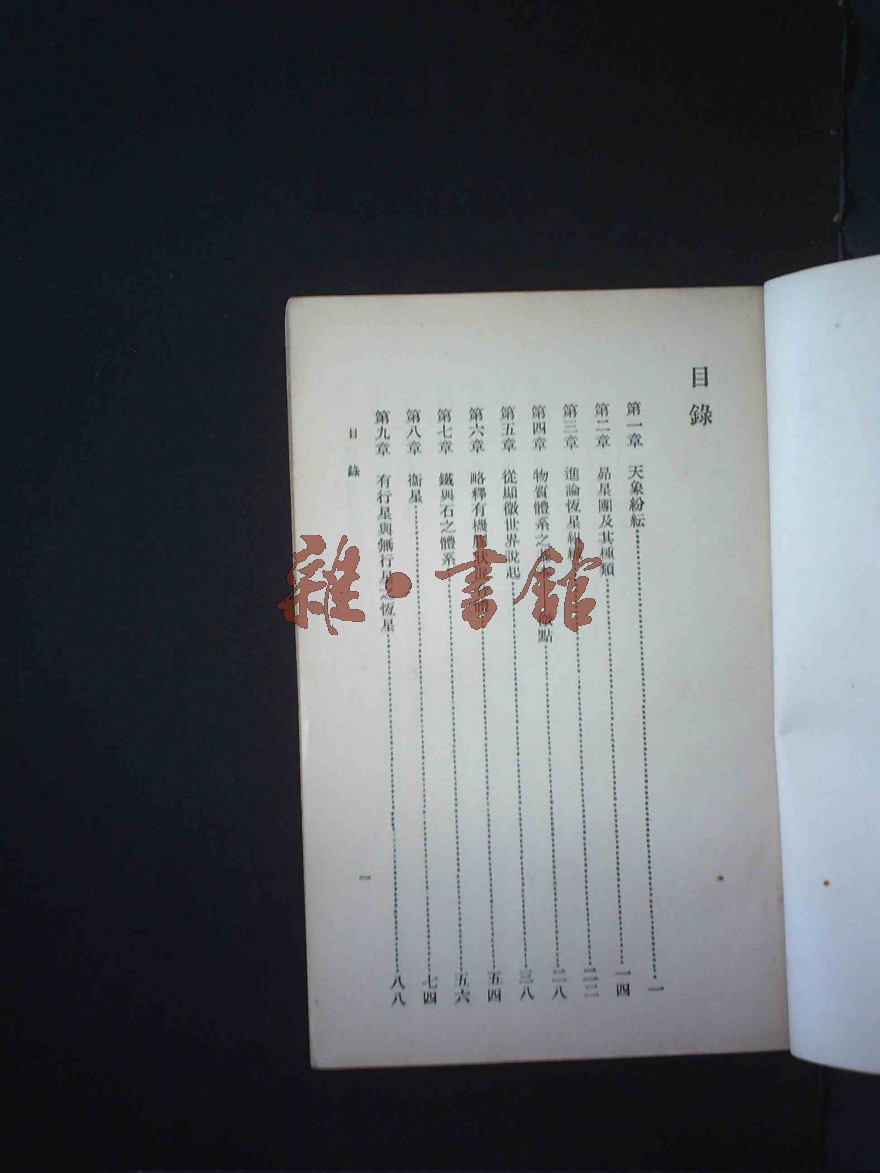 目錄
第一章 天象紛紜 一
第二章 昴星團及其種類 一四
第三章 進論恆星組 二二
第四章 物質體系之 點 二八
第五章 從顯微世界說起 三八
第六章 略釋有機 狀 五四
第七章 鐵與石之體系 五六
第八章 衞星 七四
第九章 有行星與無行星之恆星 八八
目錄
一
雜·書館